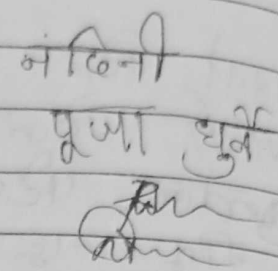 नंदिनी
पूजा धुर्वे